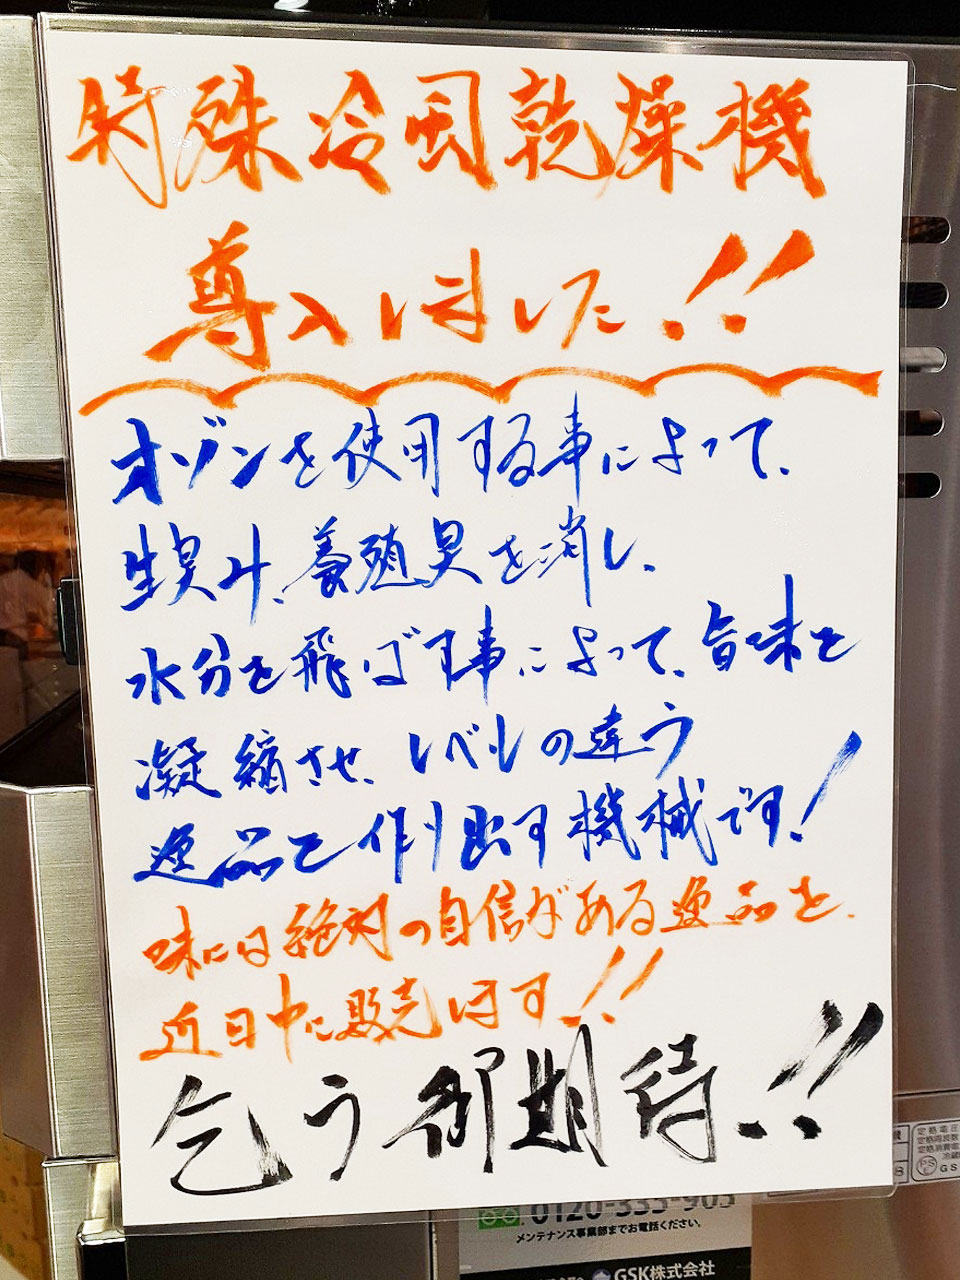 特殊冷風乾燥機
導入しました!!
オゾンを使用する事によって、
生臭み、養殖臭を消し、
水分を飛ばす事によって、旨味を
凝縮させ、レベルの違う
逸品を作り出す機械です!
味には絶対の自信がある逸品を、
近日中に販売します!!
乞う御期待!!
0120-335-905
メンテナンス事業部までお電話ください。
GSK株式会社
定格電圧
定格周波数
定格消費電
冷蔵
GS